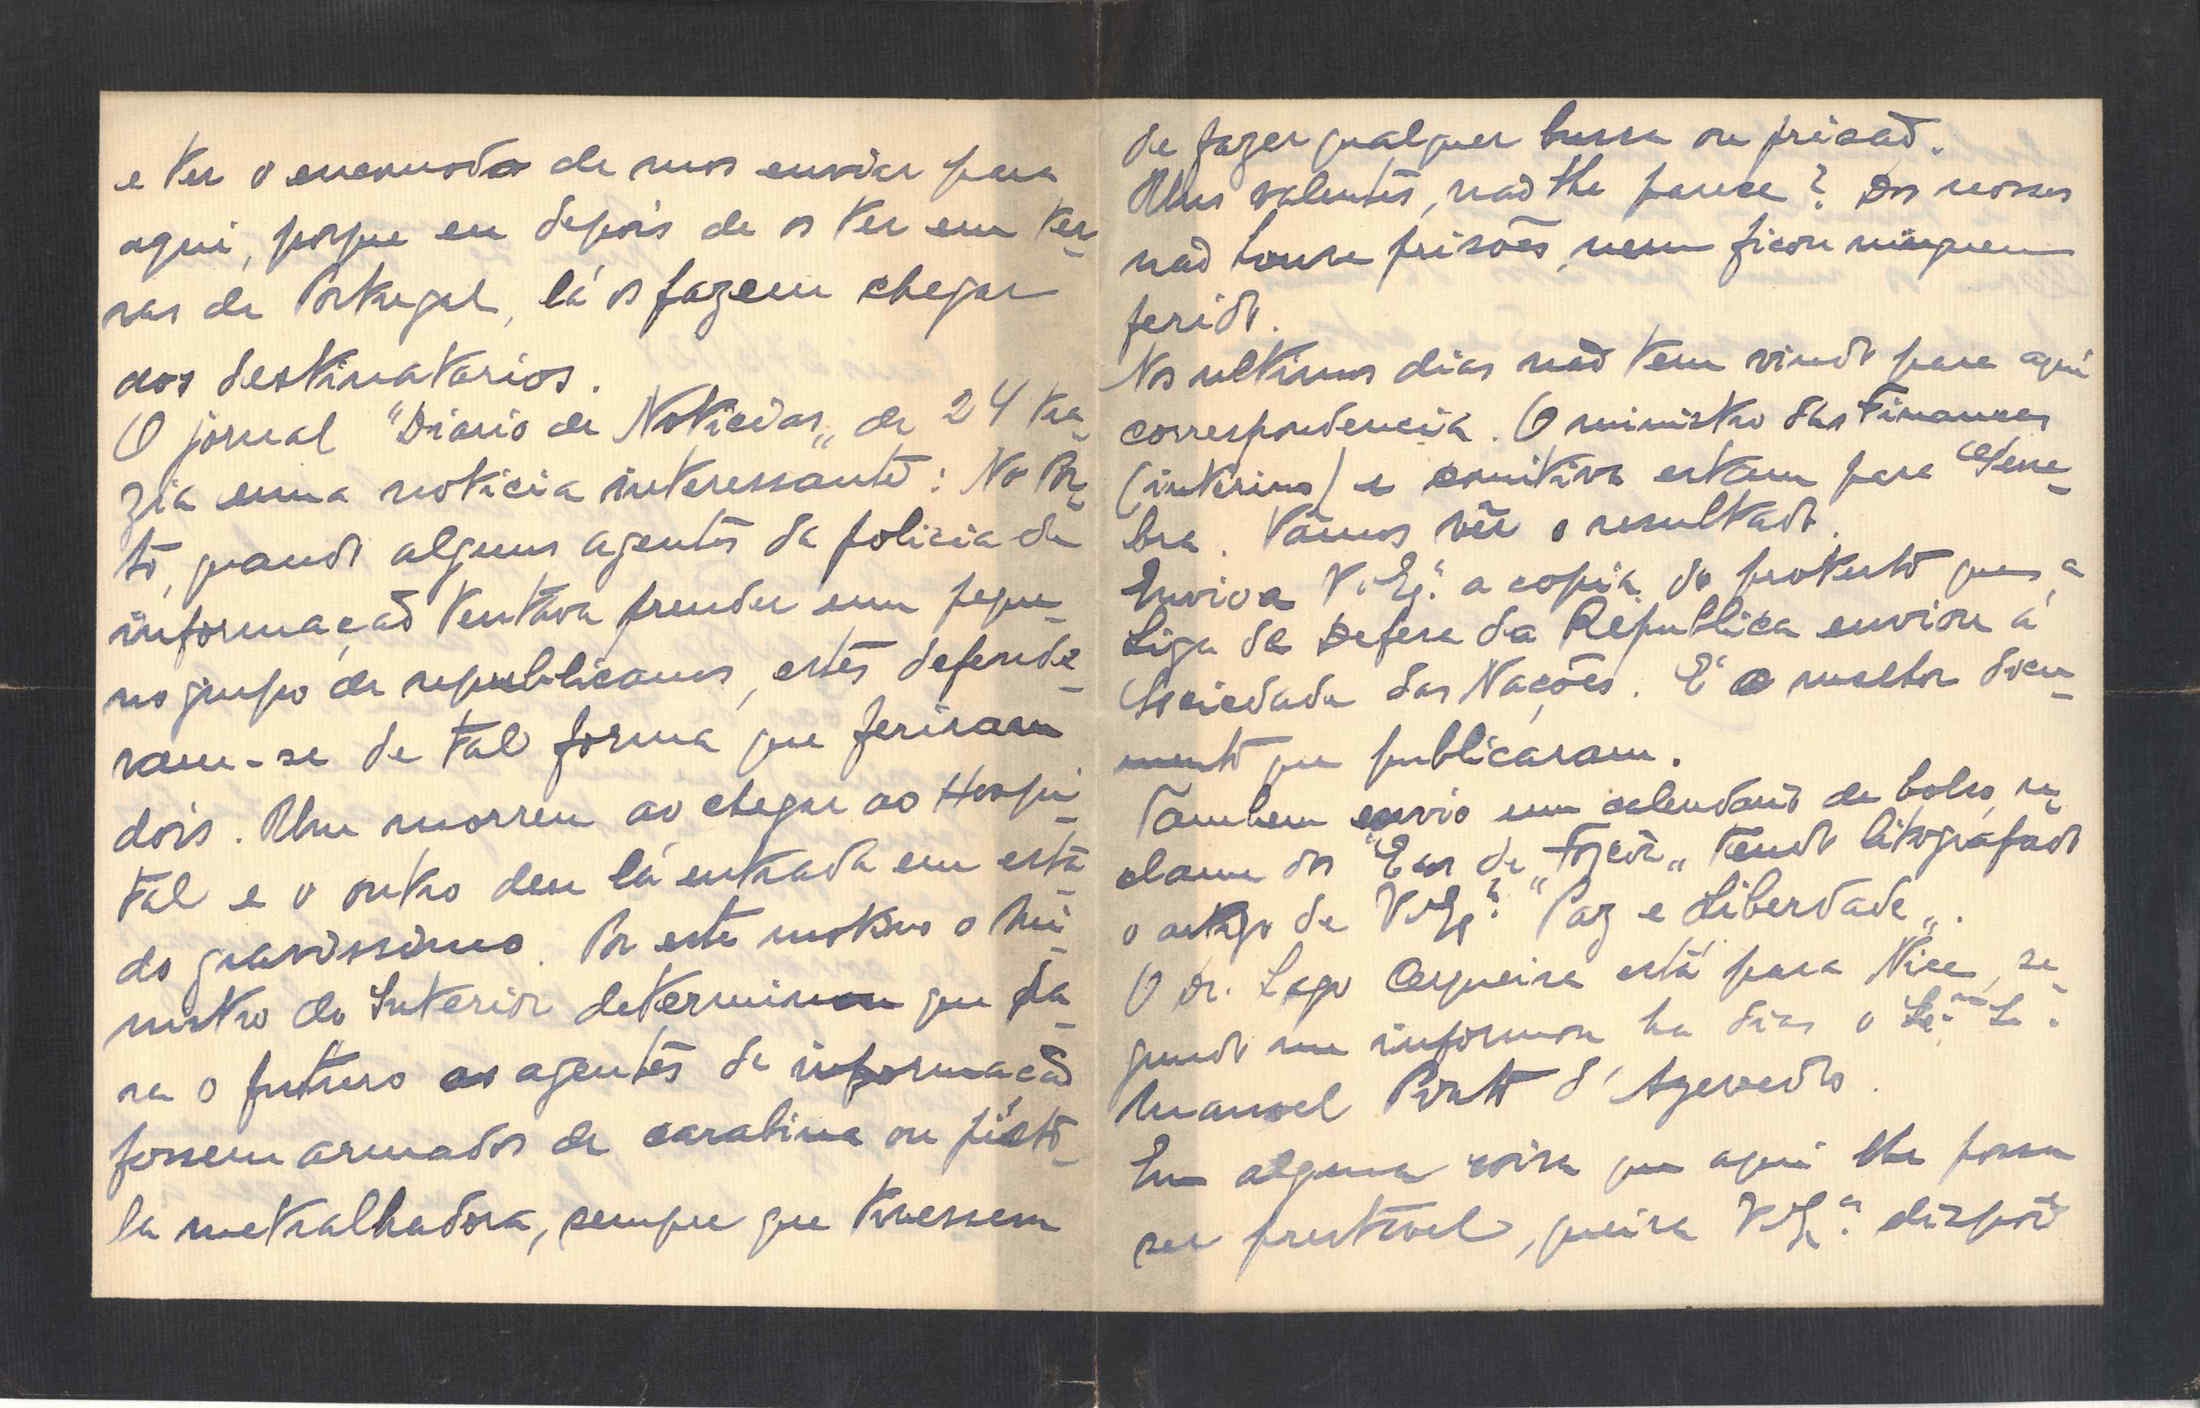 e ter o encomodo de nos enviar para
aqui, porque eu depois de os ter em ter-
ras de Portugal, lá os fazem chegar
aos destinatarios.
O jornal "Diario de Noticias„ de 24 tra-
zia uma noticia interessante: No Por-
to, quando alguns agentes da policia de
informação tentava prender um peque-
no grupo de republicanos, estes defende-
ram-se de tal forma que feriram
dois. Um morreu ao chegar ao Hospi-
tal e o outro deu lá entrada em esta-
do gravissimo. Por este motivo o Mi-
nistro do Interior determinou que pa-
ra o futuro os agentes de informação
fossem armados de carabina ou pisto-
la metralhadora, sempre que tivessem
de fazer qualquer busca ou prisão.
Uns valentes, não lhe parece? Dos nossos
não houve prisões, nem ficou ninguem
ferido.
Nos ultimos dias não tem vindo para aqui
correspondencia. O ministro das Finanças
(interino) e comitiva estam para Gene-
bra. Vamos vêr o resultado.
Envio a V. Exª. a copia do protesto que a
Liga da Defesa da Republica enviou á
Sociedade das Nações. É o melhor docu-
mento que publicaram.
Tambem envio um calendario de bolso, re-
clame dos "Ecos de Tojeda„ tendo litografado
o artigo de V. Exª. "Paz e Liberdade„.
O Dr. Lago Cerqueira está para Nice, se-
gundo me informou ha dias o
Manoel Pinto d'Azevedo.
Em alguma coisa que aqui lhe possa
ser prestavel, queira V. Exª. dispôr